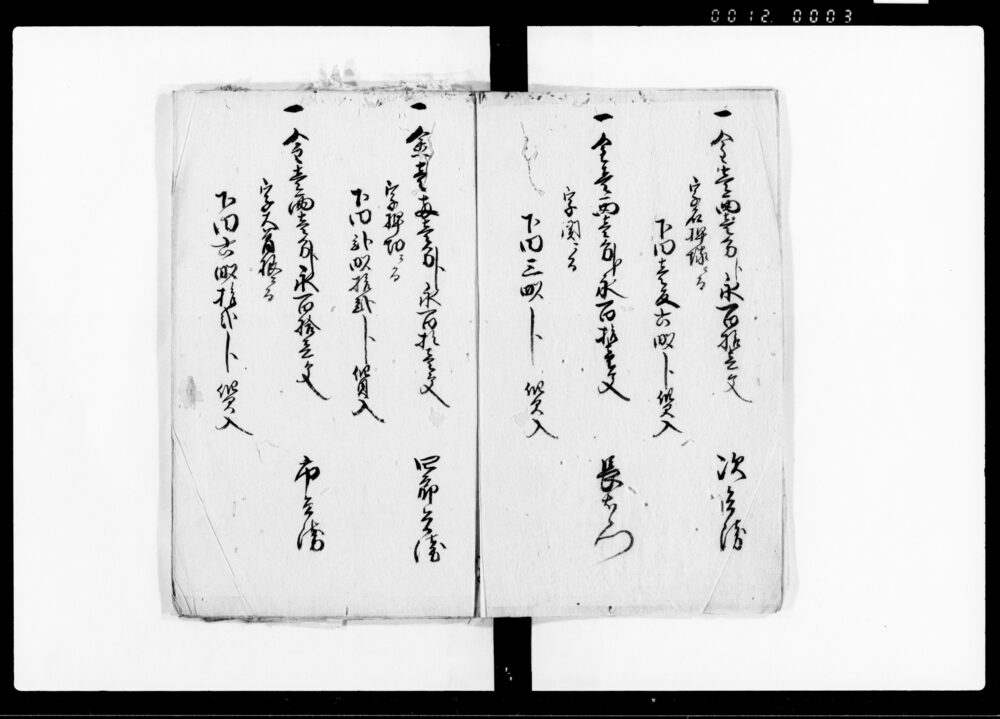 0012. 0003
一 金壱両壱分ト永百拾壱文 次兵衛
字石押場ニ而
下田壱反六畝ト 質入
一 金壱両壱分ト永百拾壱文 長右衛門
字関ニ而
下田三畝ト 質入
一 金壱両壱分ト永百拾壱文 四郎兵衛
字押切ニ而
下田弐畝拾弐ト 質入
一 金壱両壱分ト永百拾壱文 市兵衛
字
下田六畝拾弐ト 質入